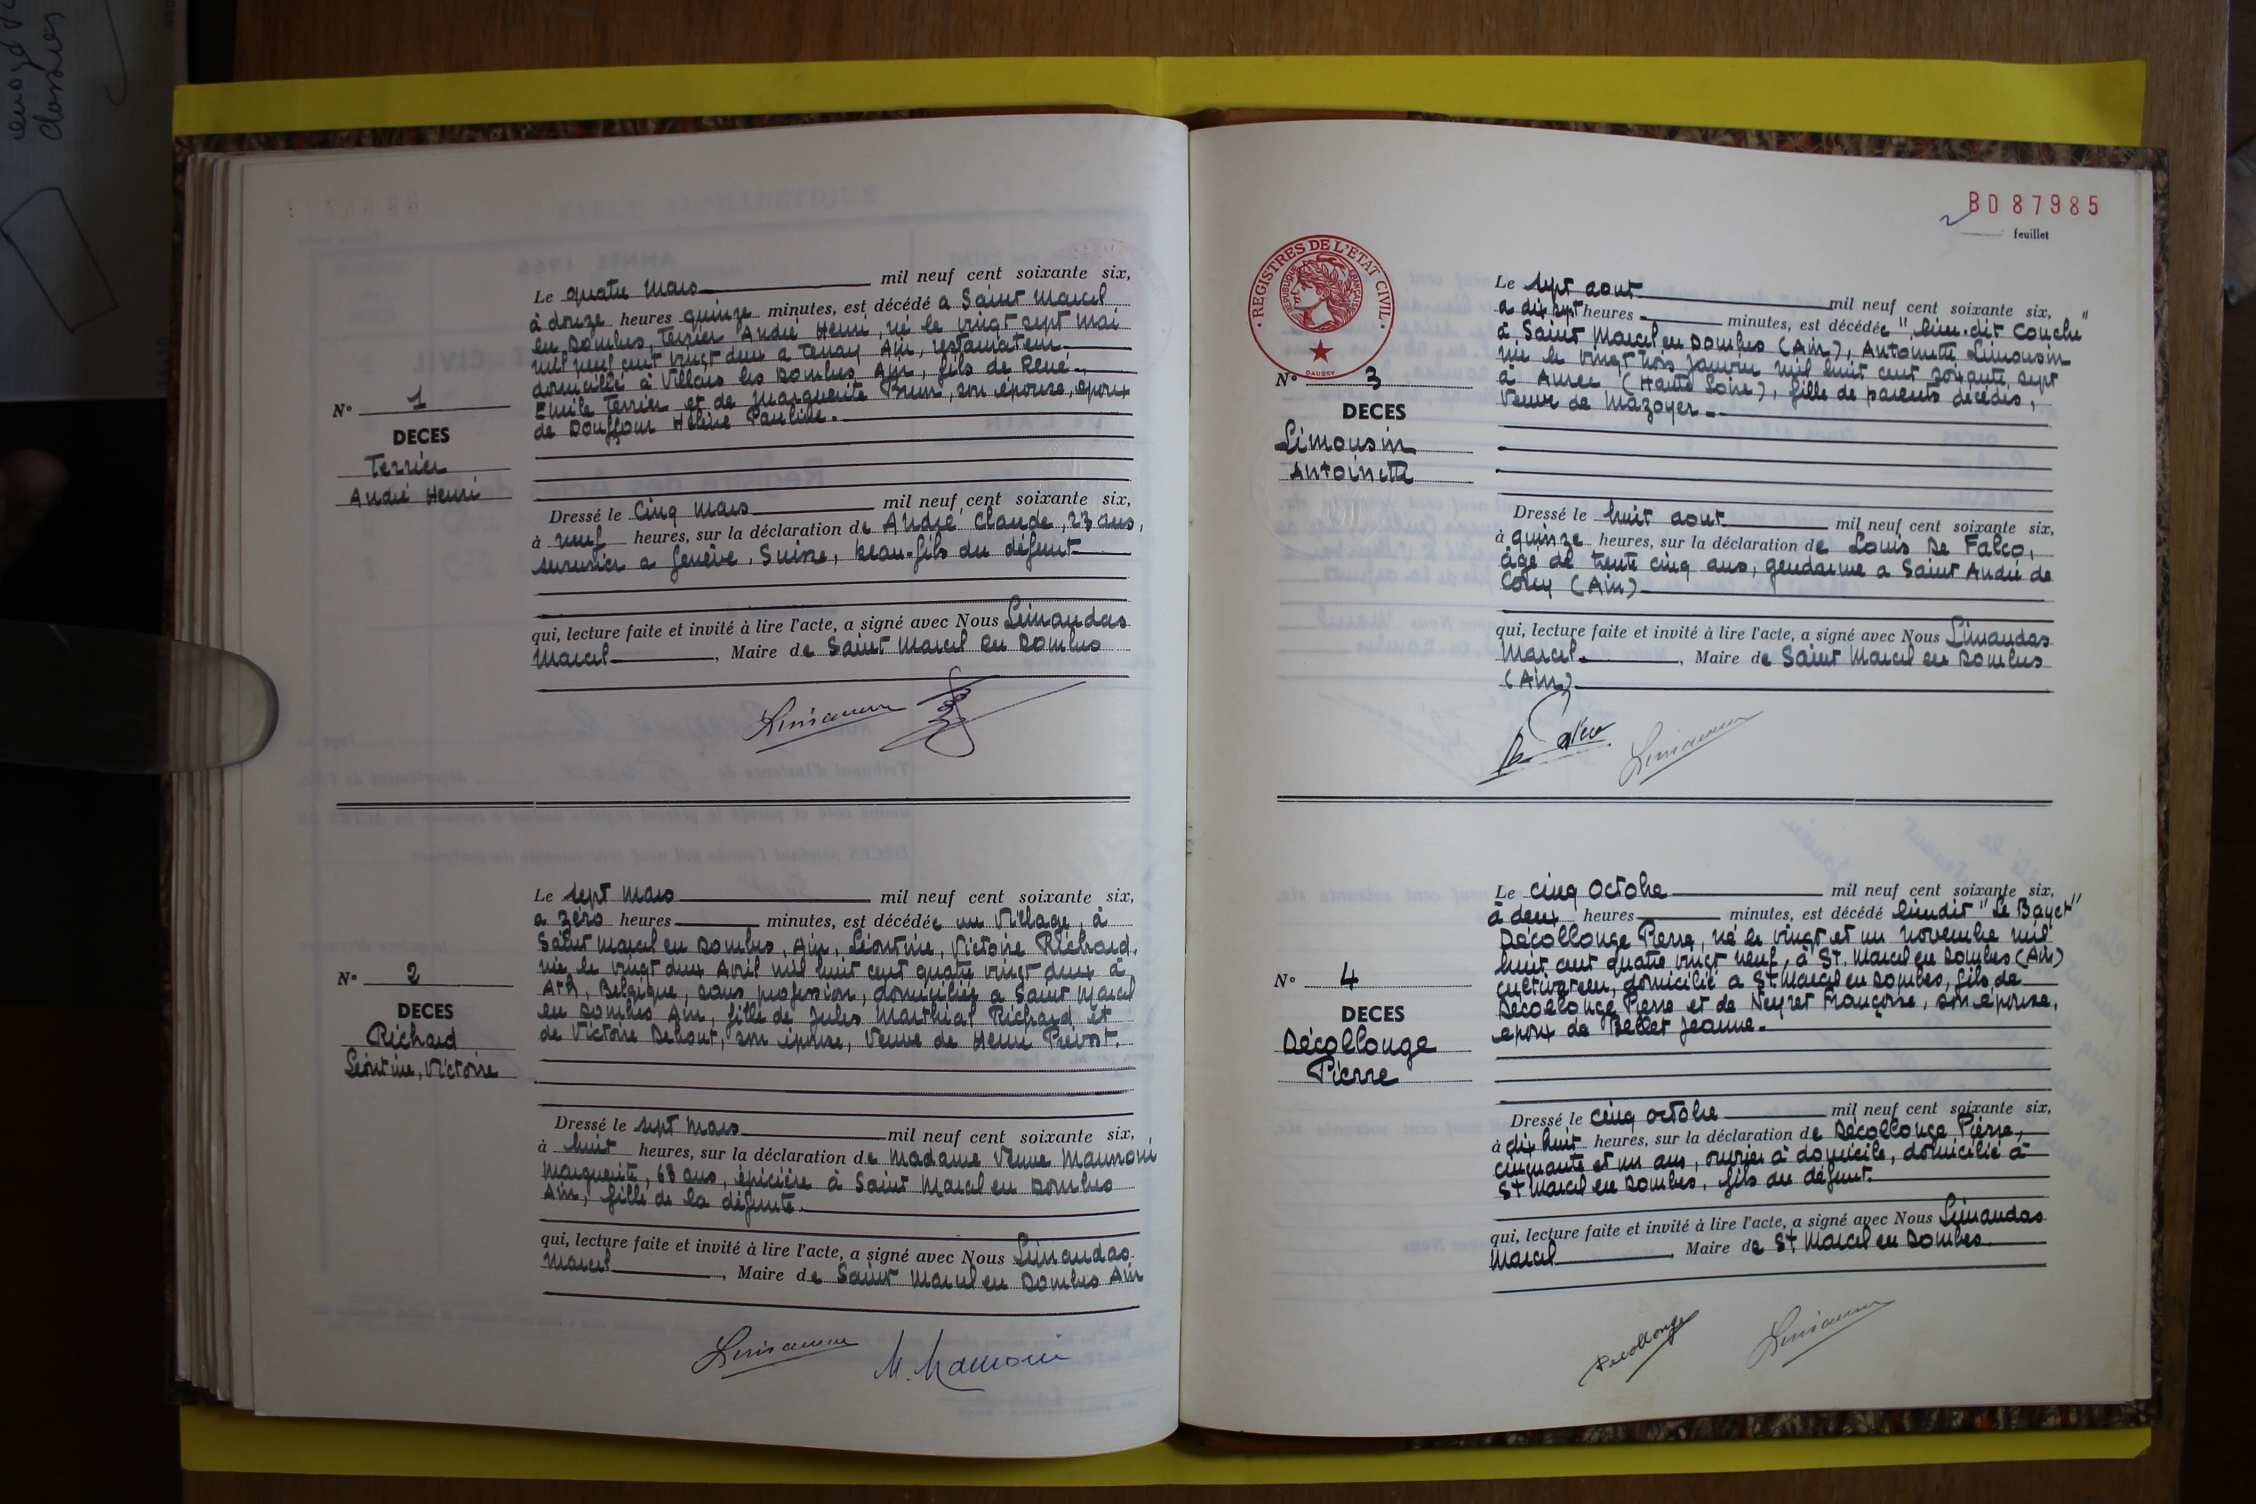 N° 1
DECES
Terrier
André Henri
Le quatre mars mil neuf cent soixante six,
à douze heures quinze minutes, est décédé a Saint Marcel
en Dombes, Terrier André Henri, né le vingt sept mai
mil neuf cent vingt deux a Tenay Ain, restaurateur
domicilié à Villars les Dombes Ain, fils de René
Emile Terrier et de Marguerite Brun, son épouse, epoux
de Bouffour Hélène Pauline.
Dressé le cinq mars mil neuf cent soixante six,
à neuf heures, sur la déclaration de André Claude, 23 ans,
serurier a Genève, Suisse, beau-fils du défunt
qui, lecture faite et invité à lire l'acte, a signé avec Nous Limandas
Marcel, Maire de Saint Marcel en Dombes
N° 2
DECES
Richard
Léontine, Victoire
Le sept mars mil neuf cent soixante six,
a zéro heures minutes, est décédée au Village, à
Saint Marcel en Dombes, Ain, Léontine, Victoire Richard,
née le vingt deux Avril mil huit cent quatre vingt deux à
Ath, Belgique, sans profession, domiciliée a Saint Marcel
en Dombes Ain, fille de Jules Marthial Richard et
de Victoire Debout, son épouse, Veuve de Henri Prevot.
Dressé le sept mars mil neuf cent soixante six,
à huit heures, sur la déclaration de Madame Veuve Maunoni
Marguerite, 63 ans, épicière à Saint Marcel en Dombes
Ain, fille de la défunte.
qui, lecture faite et invité à lire l'acte, a signé avec Nous Limandas
Marcel, Maire de Saint Marcel en Dombes Ain
BD 87985
2 feuillet
REGISTRES DE L'ETAT CIVIL
DAUSSY
N° 3
DECES
Limousin
Antoinette
Le sept aout mil neuf cent soixante six,
a dix sept heures minutes, est décédée "lieu-dit Couche"
à Saint Marcel en Dombes (Ain), Antoinette Limousin
née le vingt trois janvier mil huit cent soixante sept
à Aurec (Haute Loire), fille de parents décédés,
Veuve de Mazoyer
Dressé le huit aout mil neuf cent soixante six,
à quinze heures, sur la déclaration de Louis De Falco,
âgé de trente cinq ans, gendarme a Saint André de
Corcy (Ain)
qui, lecture faite et invité à lire l'acte, a signé avec Nous Limandas
Marcel, Maire de Saint Marcel en Dombes
(Ain)
De Falco
N° 4
DECES
Décollonge
Pierre
Le cinq Octobre mil neuf cent soixante six,
à deux heures minutes, est décédé lieudit "Le Bayet"
Décollonge Pierre, né le vingt et un novembre mil
huit cent quatre vingt neuf, à St. Marcel en Dombes (Ain)
cultivateur, domicilié a St Marcel en Dombes, fils de
Décollonge Pierre et de Neyret Françoise, son épouse,
epoux de Bellet Jeanne.
Dressé le cinq octobre mil neuf cent soixante six,
à dix huit heures, sur la déclaration de Décollonge Pierre,
cinquante et un ans, ouvrier à domicile, domicilié à
St Marcel en Dombes, fils du défunt.
qui, lecture faite et invité à lire l'acte, a signé avec Nous Limandas
Marcel, Maire de St Marcel en Dombes
Decollonge